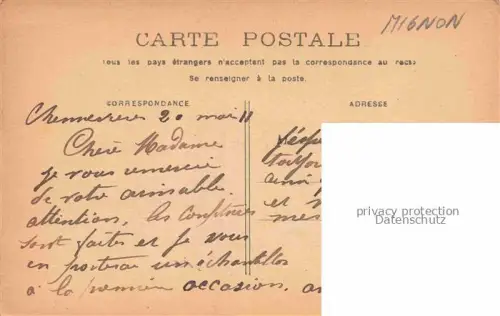 MIGNON
CARTE POSTALE
Tous les pays étrangers n'acceptent pas la correspondance au recto
Se renseigner à la poste.
CORRESPONDANCE
ADRESSE
20 mai 11
Chère Madame
je vous remercie
de votre aimable
attention. les confitures
sont faites et je vous
en porterai un échantillon
à la première occasion.
et
privacy protection
Datenschutz